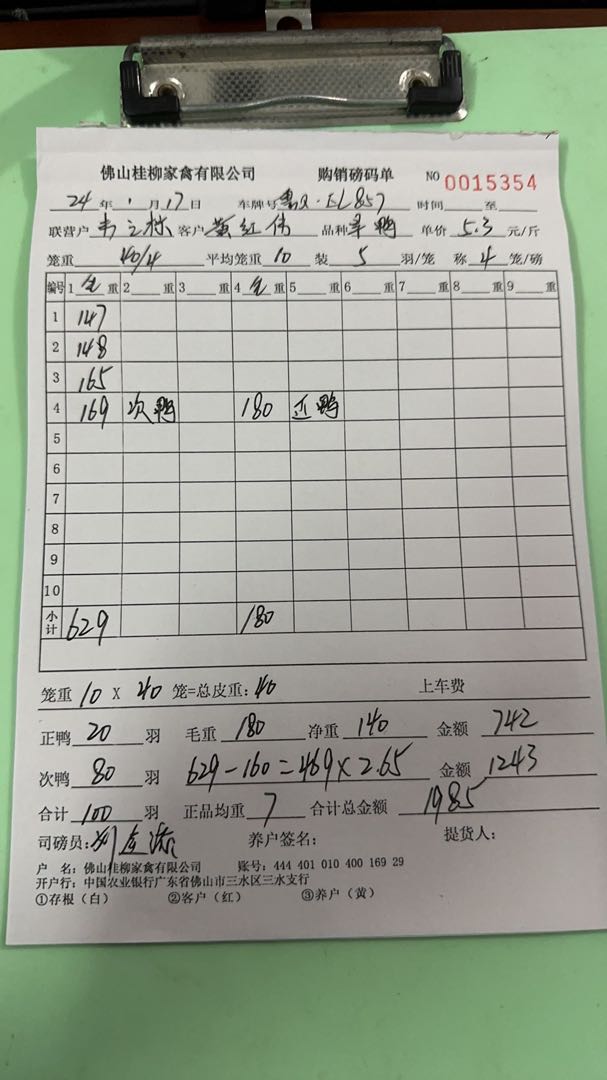 佛山桂柳家禽有限公司 购销磅码单 NO 0015354
24 年 1 月 17 日 车牌号 EL857 时间 至
联营户 韦之栋 客户 黄红伟 品种 鸭 单价 5.3 元/斤
笼重 40/4 平均笼重 10 装 5 羽/笼 称 4 笼/磅
编号 1 毛 重 2 重 3 重 4 毛 重 5 重 6 重 7 重 8 重 9 重
1 147
2 148
3 165
4 169 次鸭 180 正鸭
5
6
7
8
9
10
小计 629 180
笼重 10 X 40 笼=总皮重: 40 上车费
正鸭 20 羽 毛重 180 净重 140 金额 742
次鸭 80 羽 629-160=469×2.65 金额 1243
合计 100 羽 正品均重 7 合计总金额 1985
司磅员: 养户签名: 提货人:
户 名: 佛山桂柳家禽有限公司 账号: 444 401 010 400 169 29
开户行: 中国农业银行广东省佛山市三水区三水支行
①存根（白） ②客户（红） ③养户（黄）